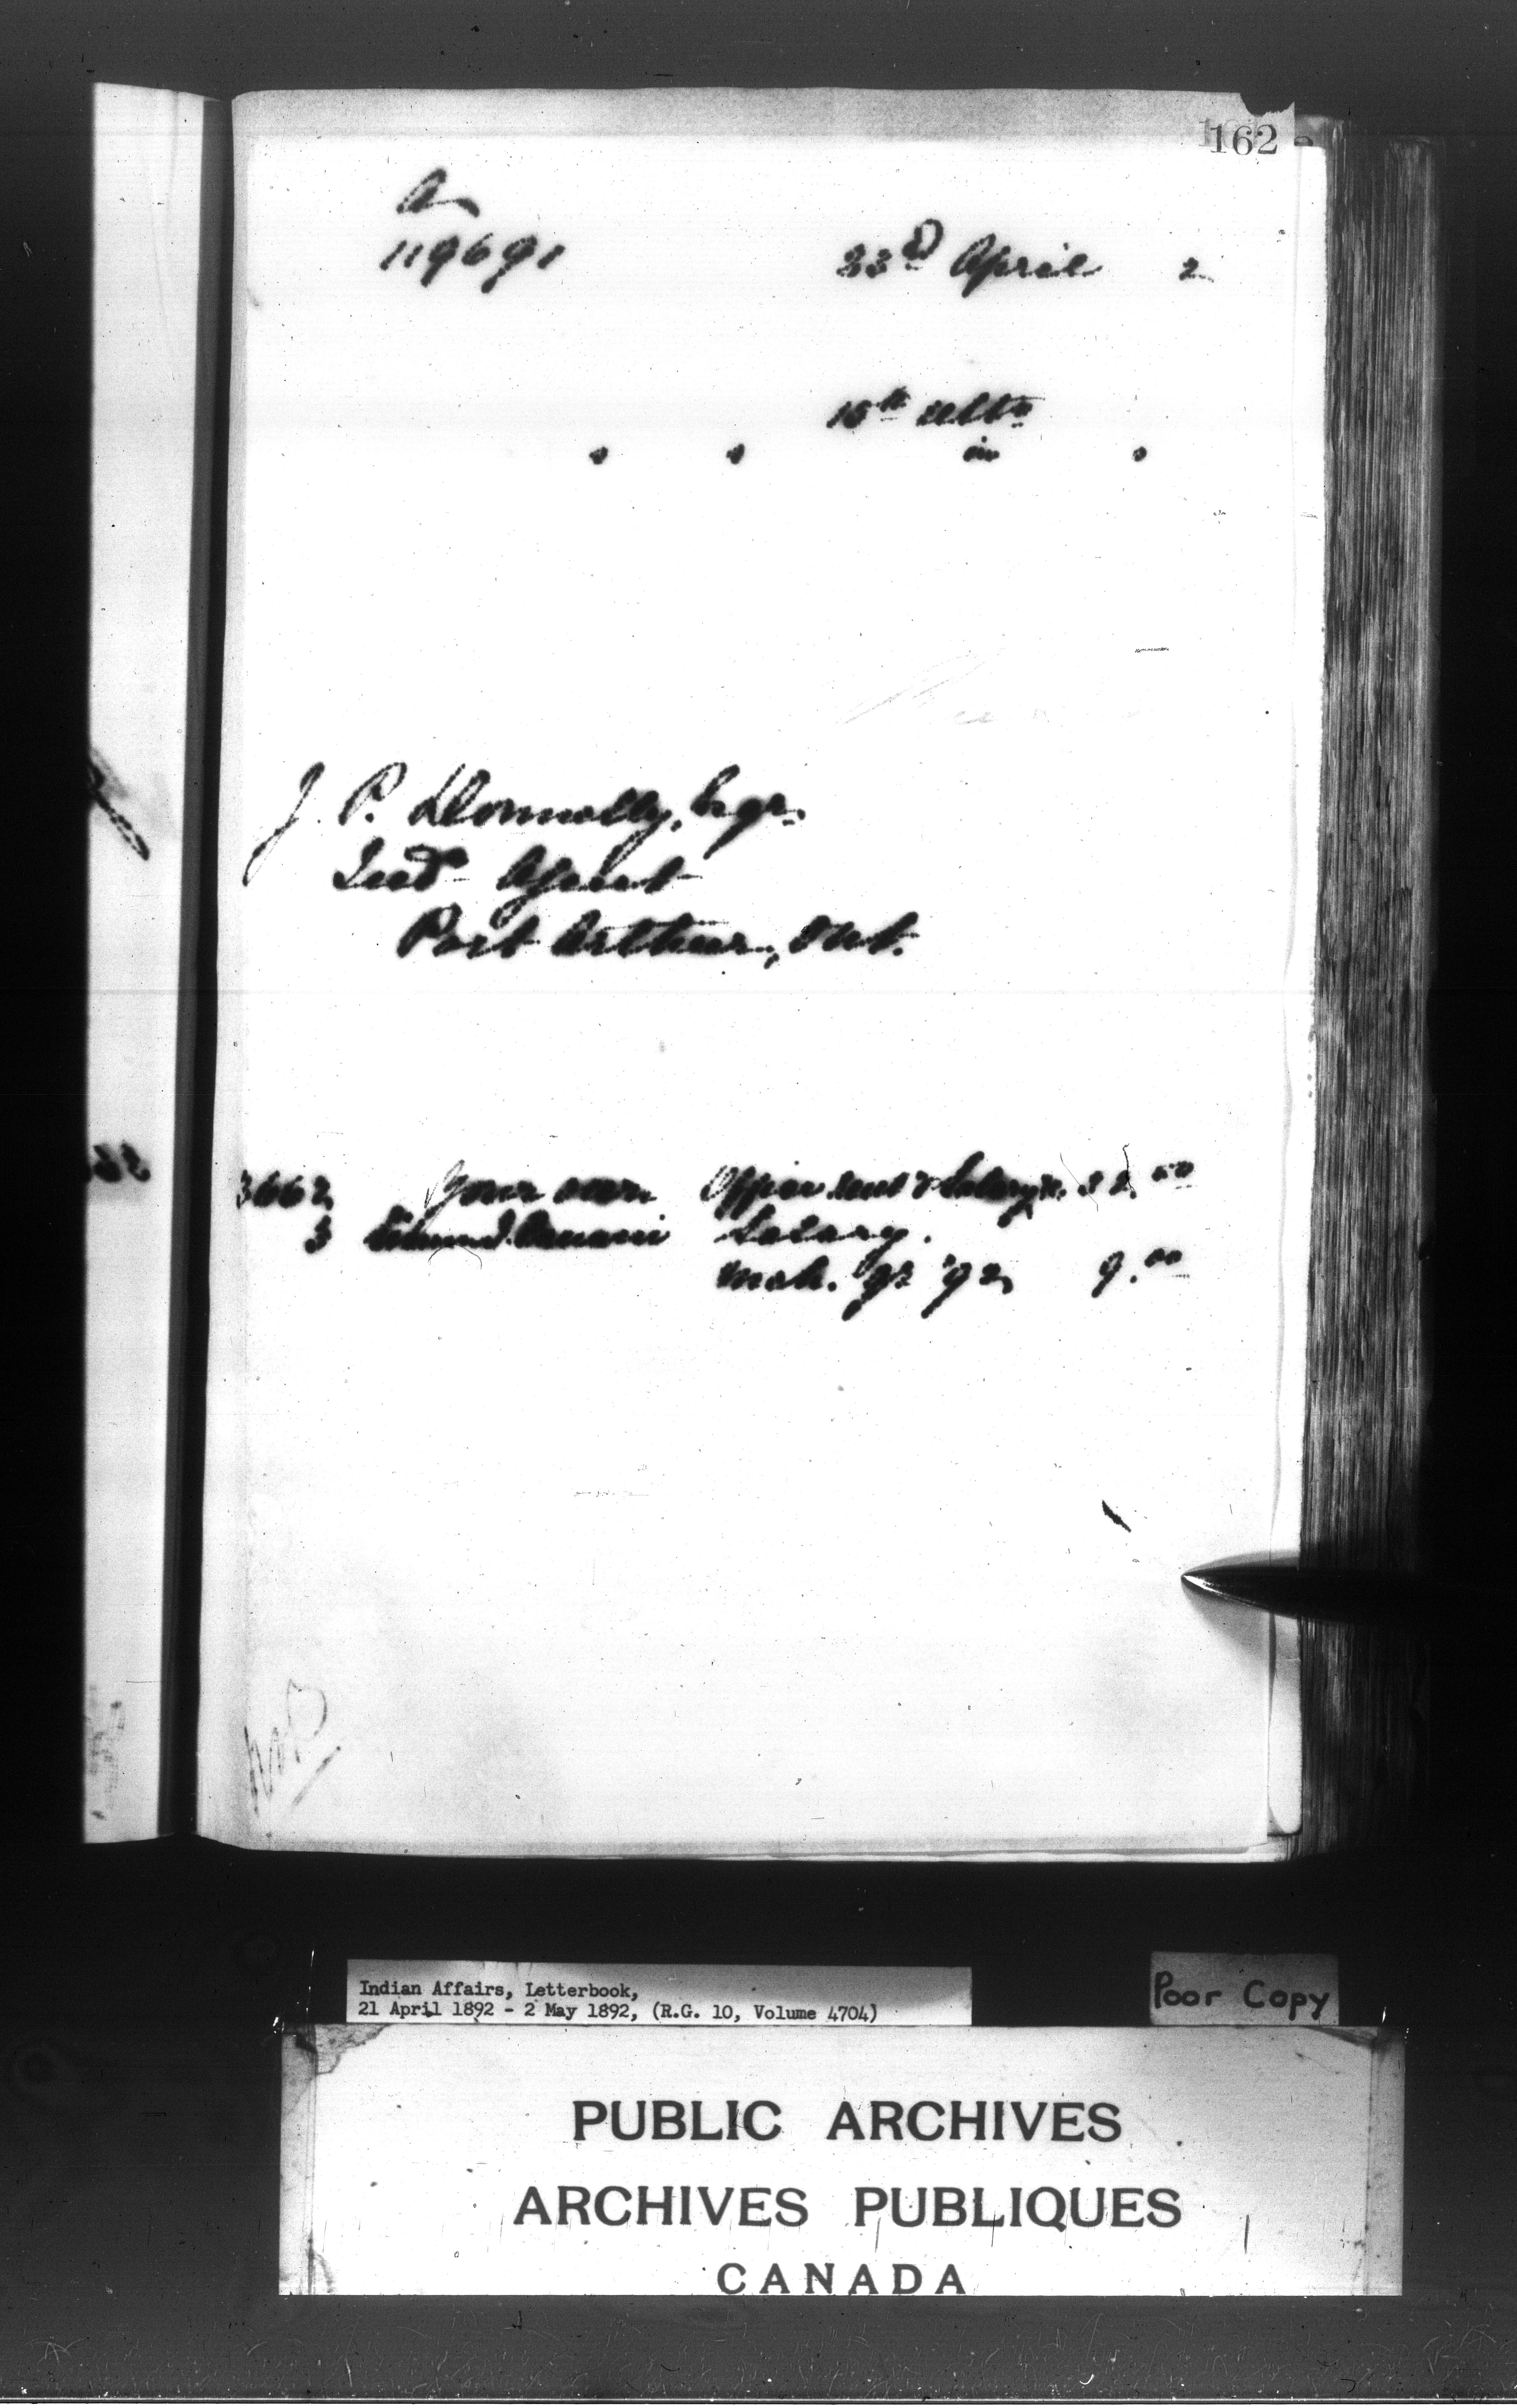 162
A
119691
23d April 2
15th ulto
in
J. P. Donnelly, Esqr.
Ind Agent
Port Arthur, Ont.
3662 Your own Office rent & Salary 32.50
3 Salary.
Mch. qr '92 9.00
Indian Affairs, Letterbook,
21 April 1892 - 2 May 1892, (R.G. 10, Volume 4704)
Poor Copy
PUBLIC ARCHIVES
ARCHIVES PUBLIQUES
CANADA